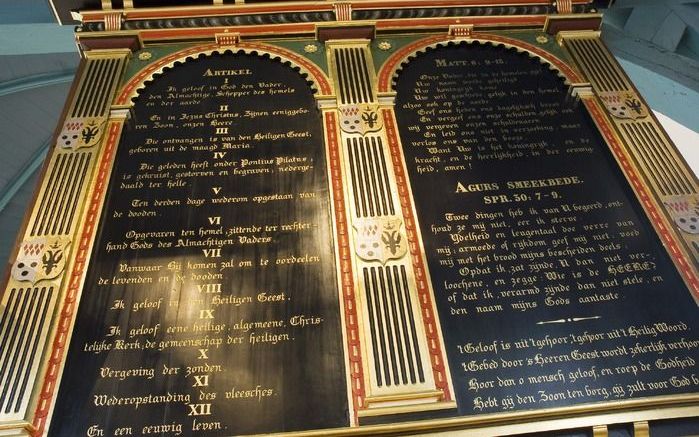 ARTIKEL
I
Ik geloof in God den Vader,
den Almachtige, Schepper des hemels
en der aarde
II
En in Jezus Christus, Zijnen eeniggebo-
ren Zoon, onzen Heere
III
Die ontvangen is van den Heiligen Geest,
geboren uit de maagd Maria.
IV
Die geleden heeft onder Pontius Pilatus,
is gekruist, gestorven en begraven, nederge-
daald ter helle.
V
Ten derden dage wederom opgestaan van
de dooden.
VI
Opgevaren ten hemel, zittende ter rechter-
hand Gods des Almachtigen Vaders.
VII
Vanwaar Hij komen zal om te oordeelen
de levenden en de dooden.
VIII
Ik geloof in den Heiligen Geest,
IX
Ik geloof eene heilige, algemeene, Chris-
telijke Kerk, de gemeenschap der heiligen.
X
Vergeving der zonden.
XI
Wederopstanding des vleesches.
XII
En een eeuwig leven.
MATT. 6. 9-13.
Onze Vader, die in de hemelen zijt!
Uw naam geheiligd
Uw koningrijk kome
Uw wil geschiede gelijk in den hemel
alzoo ook op de aarde
Geef ons heden ons dagelijksch brood
En vergeef ons onze schulden, gelijk ook
wij vergeven onzen schuldenaren
En leid ons niet in verzoeking, maar
verlos ons van den booze
Want Uw is het koningrijk, en de
kracht, en de heerlijkheid, in der eeuwig-
heid, amen!
AGURS SMEEKBEDE.
SPR. 30: 7-9.
Twee dingen heb ik van U begeerd, ont-
houd ze mij niet, eer ik sterve
IJdelheid en leugentaal doe verre van
mij; armoede of rijkdom geef mij niet, voed
mij met het brood mijns bescheiden deels;
Opdat ik, zat zijnde, U dan niet ver-
loochene, en zegge: Wie is de HEERE?
of dat ik, verarmd zijnde, dan niet stele, en
den naam mijns Gods aantaste.
't Geloof is uit 't gehoor, 't gehoor uit 't Heilig Woord.
't Gebed door 's Heeren Geest wordt zekerlijk verhoord
Hoor dan o mensch geloof, en roep de Godheid
Hebt gij den Zoon ten borg, gij zult voor God